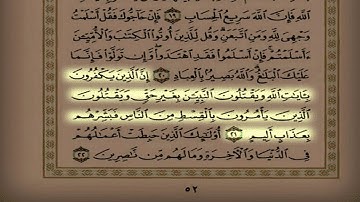 ٱللَّهِ فَإِنَّ ٱللَّهَ سَرِيعُ ٱلْحِسَابِ ۝١٩ فَإِنْ حَآجُّوكَ فَقُلْ أَسْلَمْتُ
وَجْهِىَ لِلَّهِ وَمَنِ ٱتَّبَعَنِ وَقُل لِّلَّذِينَ أُوتُوا۟ ٱلْكِتَٰبَ وَٱلْأُمِّيِّـۧنَ
ءَأَسْلَمْتُمْ فَإِنْ أَسْلَمُوا۟ فَقَدِ ٱهْتَدَوا۟ وَّإِن تَوَلَّوْا۟ فَإِنَّمَا
عَلَيْكَ ٱلْبَلَٰغُ وَٱللَّهُ بَصِيرٌۢ بِٱلْعِبَادِ ۝٢٠ إِنَّ ٱلَّذِينَ يَكْفُرُونَ
بِـَٔايَٰتِ ٱللَّهِ وَيَقْتُلُونَ ٱلنَّبِيِّـۧنَ بِغَيْرِ حَقٍّ وَيَقْتُلُونَ
ٱلَّذِينَ يَأْمُرُونَ بِٱلْقِسْطِ مِنَ ٱلنَّاسِ فَبَشِّرْهُم
بِعَذَابٍ أَلِيمٍ ۝٢١ أُو۟لَٰٓئِكَ ٱلَّذِينَ حَبِطَتْ أَعْمَٰلُهُمْ
فِى ٱلدُّنْيَا وَٱلْـَٔاخِرَةِ وَمَا لَهُم مِّن نَّٰصِرِينَ ۝٢٢
٥٢